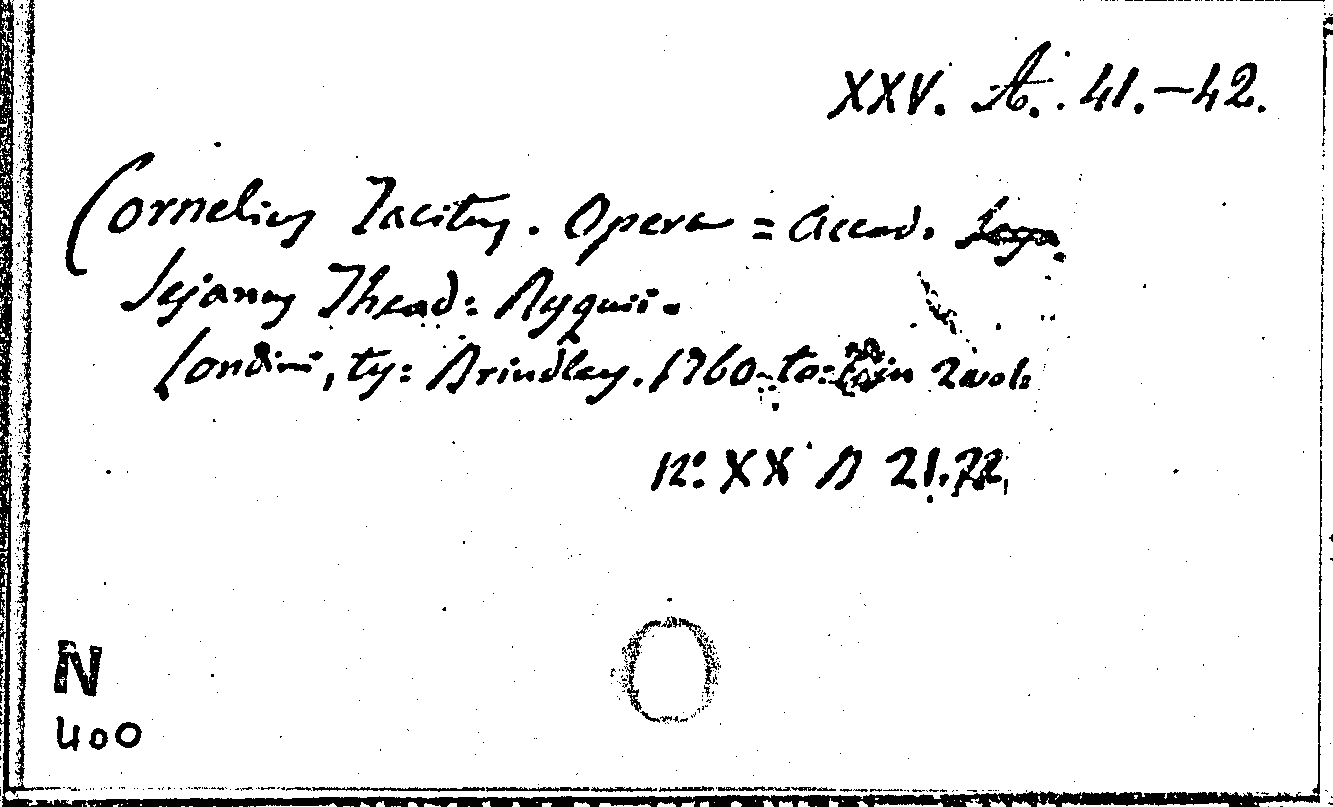 XXV. A. 41.-42.
Cornelius Tacitus. Opera = Accad.
Sejanus Thead: Ryquii.
Londini, ty: Brindley. 1760 to: in 2 vol:
12° XX B 21.22
N
400